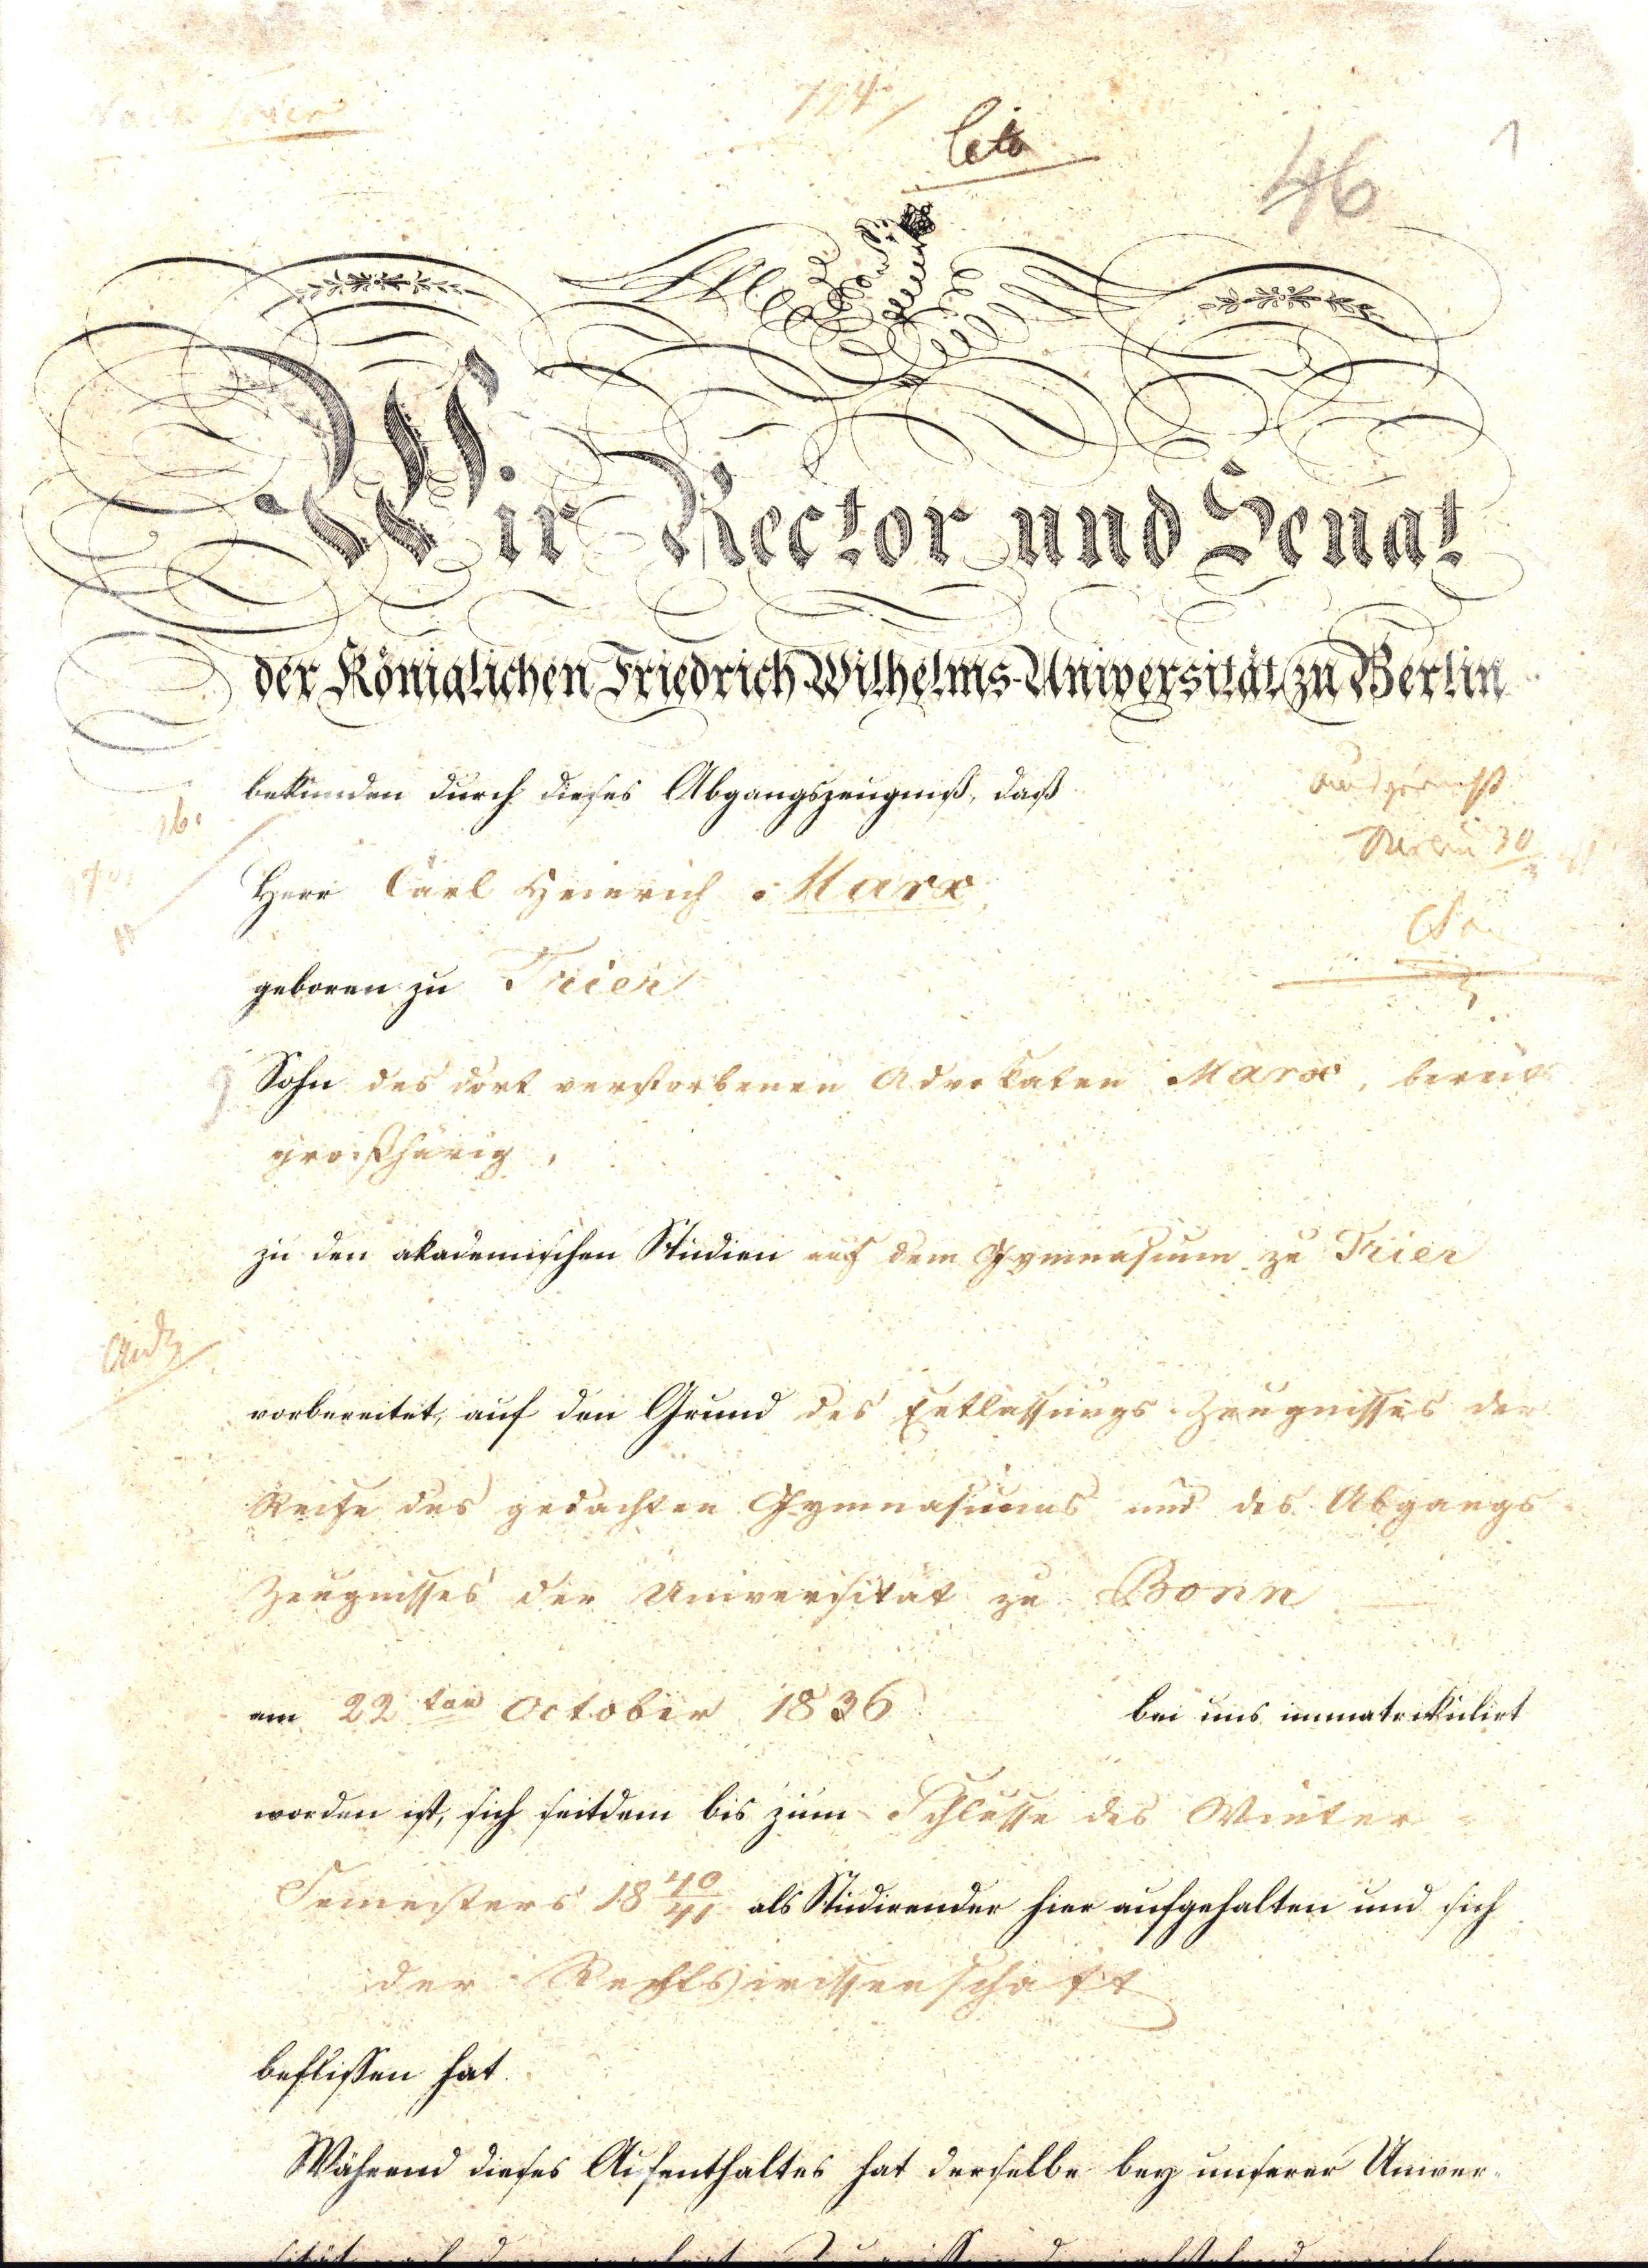 124
Cito
46
1
Wir Rector und Senat
der Königlichen Friedrich Wilhelms-Universität zu Berlin
bekunden durch dieses Abgangszeugniß, daß
Herr Carl Heinrich Marx
geboren zu Trier
Sohn des dort verstorbenen Advokaten Marx, bereits
großjährig,
zu den akademischen Studien auf dem Gymnasium zu Trier
vorbereitet, auf den Grund des Entlassungs-Zeugnisses der
Reife des gedachten Gymnasiums und des Abgangs-
Zeugnisses der Universität zu Bonn
am 22ten October 1836 bei uns immatrikulirt
worden ist, sich seitdem bis zum Schlusse des Winter-
Semesters 18 40/41 als Studirender hier aufgehalten und sich
der Rechtswissenschaft
beflissen hat.
Während dieses Aufenthaltes hat derselbe bey unserer Univer-